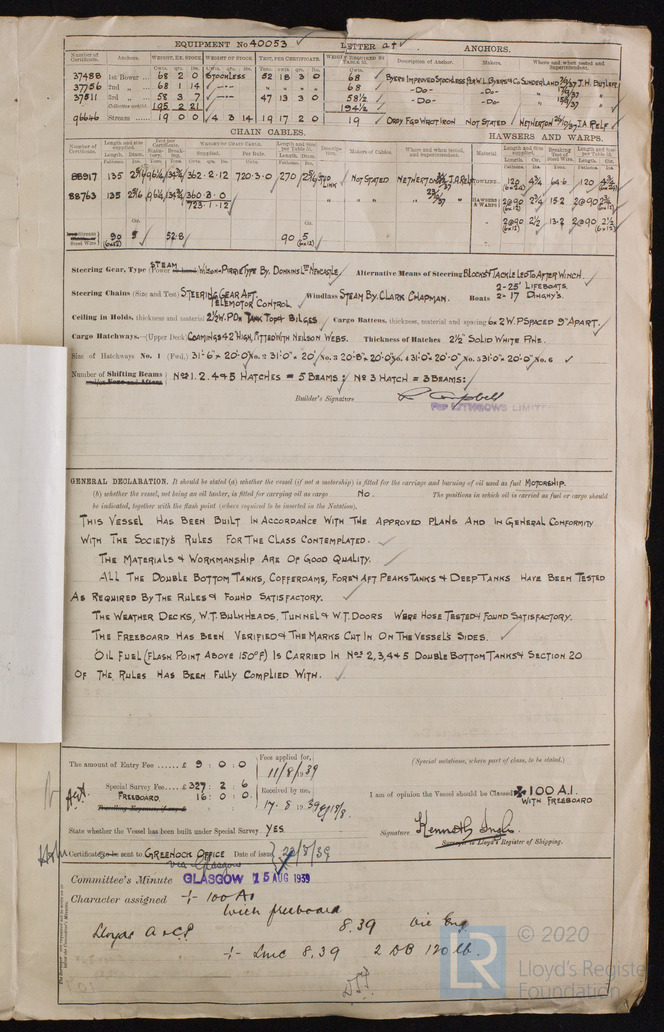 EQUIPMENT No 40053 LETTER at ANCHORS.
Number of Certificate. Anchors. WEIGHT, EX. STOCK. WEIGHT OF STOCK. TEST, PER CERTIFICATE. WEIGHT REQUIRED BY TABLE 31. Description of Anchor. Makers. Where and when tested and Superintendent.
37488 1st Bower 68 2 0 STOCKLESS 52 18 3 0 68 BYERS IMPROVED STOCKLESS PER W.L. BYERS & Co SUNDERLAND J.H. BUTLER
37756 2nd „ 68 1 14 68 -Do- -Do-
37511 3rd „ 58 3 7 47 13 3 0 58½ -Do- -Do-
Collective weight 195 2 21 194½
96646 Stream 19 0 0 4 3 14 19 17 2 0 19 ORDY FGD WROT IRON NOT STATED NETHERTON I.A RELF
CHAIN CABLES. HAWSERS AND WARPS.
88917 135 2 5/16 362·2·12 720·3·0 270 2 5/16 STUD LINK NOT STATED NETHERTON J.A. RELF TOWLINE 120 4¾ 64·6 120 4¾
88763 135 2 5/16 360·3·0 HAWSERS & WARPS 2@90 2¾ 15·2 2@90 2¾
723·1·12
2@90 2½ 13·2 2@90 2½
Steel Wire 90 5 52·8 90 5
Steering Gear, Type STEAM WILSON-PIRRIE TYPE BY. DONKINS LTD NEWCASTLE Alternative Means of Steering BLOCKS & TACKLE LED TO AFTER WINCH.
Steering Chains (Size and Test) STEERING GEAR AFT. TELEMOTOR CONTROL Windlass STEAM BY. CLARK CHAPMAN. Boats 2- 25' LIFEBOATS. 2- 17 DINGHY'S.
Ceiling in Holds, thickness and material 2½ W.P. ON TANK TOP & BILGES Cargo Battens, thickness, material and spacing 6 x 2 W.P SPACED 9" APART.
Cargo Hatchways.—(Upper Deck) COAMINGS 42" HIGH, FITTED WITH NEILSON WEBS. Thickness of Hatches 2½" SOLID WHITE PINE.
Size of Hatchways No. 1 (Fwd.) 31'-6" x 20'-0" No. 2 31'-0" x 20' No. 3 20'-8" x 20'-0" No. 4 31'-0" x 20'-0" No. 5 31'-0" x 20'-0" No. 6
Number of Shifting Beams Nos 1. 2. 4 & 5 HATCHES = 5 BEAMS: No 3 HATCH = 3 BEAMS:
Builder's Signature R Campbell
For LITHGOWS LIMITED
GENERAL DECLARATION. It should be stated (a) whether the vessel (if not a motorship) is fitted for the carriage and burning of oil used as fuel MOTORSHIP.
(b) whether the vessel, not being an oil tanker, is fitted for carrying oil as cargo No. The positions in which oil is carried as fuel or cargo should
be indicated, together with the flash point (where required to be inserted in the Notation).
THIS VESSEL HAS BEEN BUILT IN ACCORDANCE WITH THE APPROVED PLANS AND IN GENERAL CONFORMITY
WITH THE SOCIETY'S RULES FOR THE CLASS CONTEMPLATED.
THE MATERIALS & WORKMANSHIP ARE OF GOOD QUALITY.
ALL THE DOUBLE BOTTOM TANKS, COFFERDAMS, FORE & AFT PEAKS TANKS & DEEP TANKS HAVE BEEN TESTED
AS REQUIRED BY THE RULES & FOUND SATISFACTORY.
THE WEATHER DECKS, W.T. BULKHEADS, TUNNEL & W.T. DOORS WERE HOSE TESTED & FOUND SATISFACTORY.
THE FREEBOARD HAS BEEN VERIFIED & THE MARKS CUT IN ON THE VESSEL'S SIDES.
OIL FUEL (FLASH POINT ABOVE 150°F) IS CARRIED IN Nos 2, 3, 4 & 5 DOUBLE BOTTOM TANKS & SECTION 20
OF THE RULES HAS BEEN FULLY COMPLIED WITH.
The amount of Entry Fee ...... £ 9 : 0 : 0 Fees applied for, 11/8/1939 (Special notations, where part of class, to be stated.)
Special Survey Fee.... £ 327 : 2 : 6 Received by me, I am of opinion the Vessel should be Classed ✠100 A.1.
FREEBOARD 16 : 0 : 0 17. 8 1939 WITH FREEBOARD
State whether the Vessel has been built under Special Survey YES Signature Kenneth Inglis
Surveyor to Lloyd's Register of Shipping.
Certificate to be sent to GREENOCK OFFICE Date of issue 22/8/39
via Glasgow
Committee's Minute GLASGOW 15 AUG 1939
Character assigned + 100 A1
With freeboard
Lloyds A & CP 8.39 Oil Eng
+ LMC 8,39 2 DB 120 lb.
LR © 2020
Lloyd's Register
Foundation